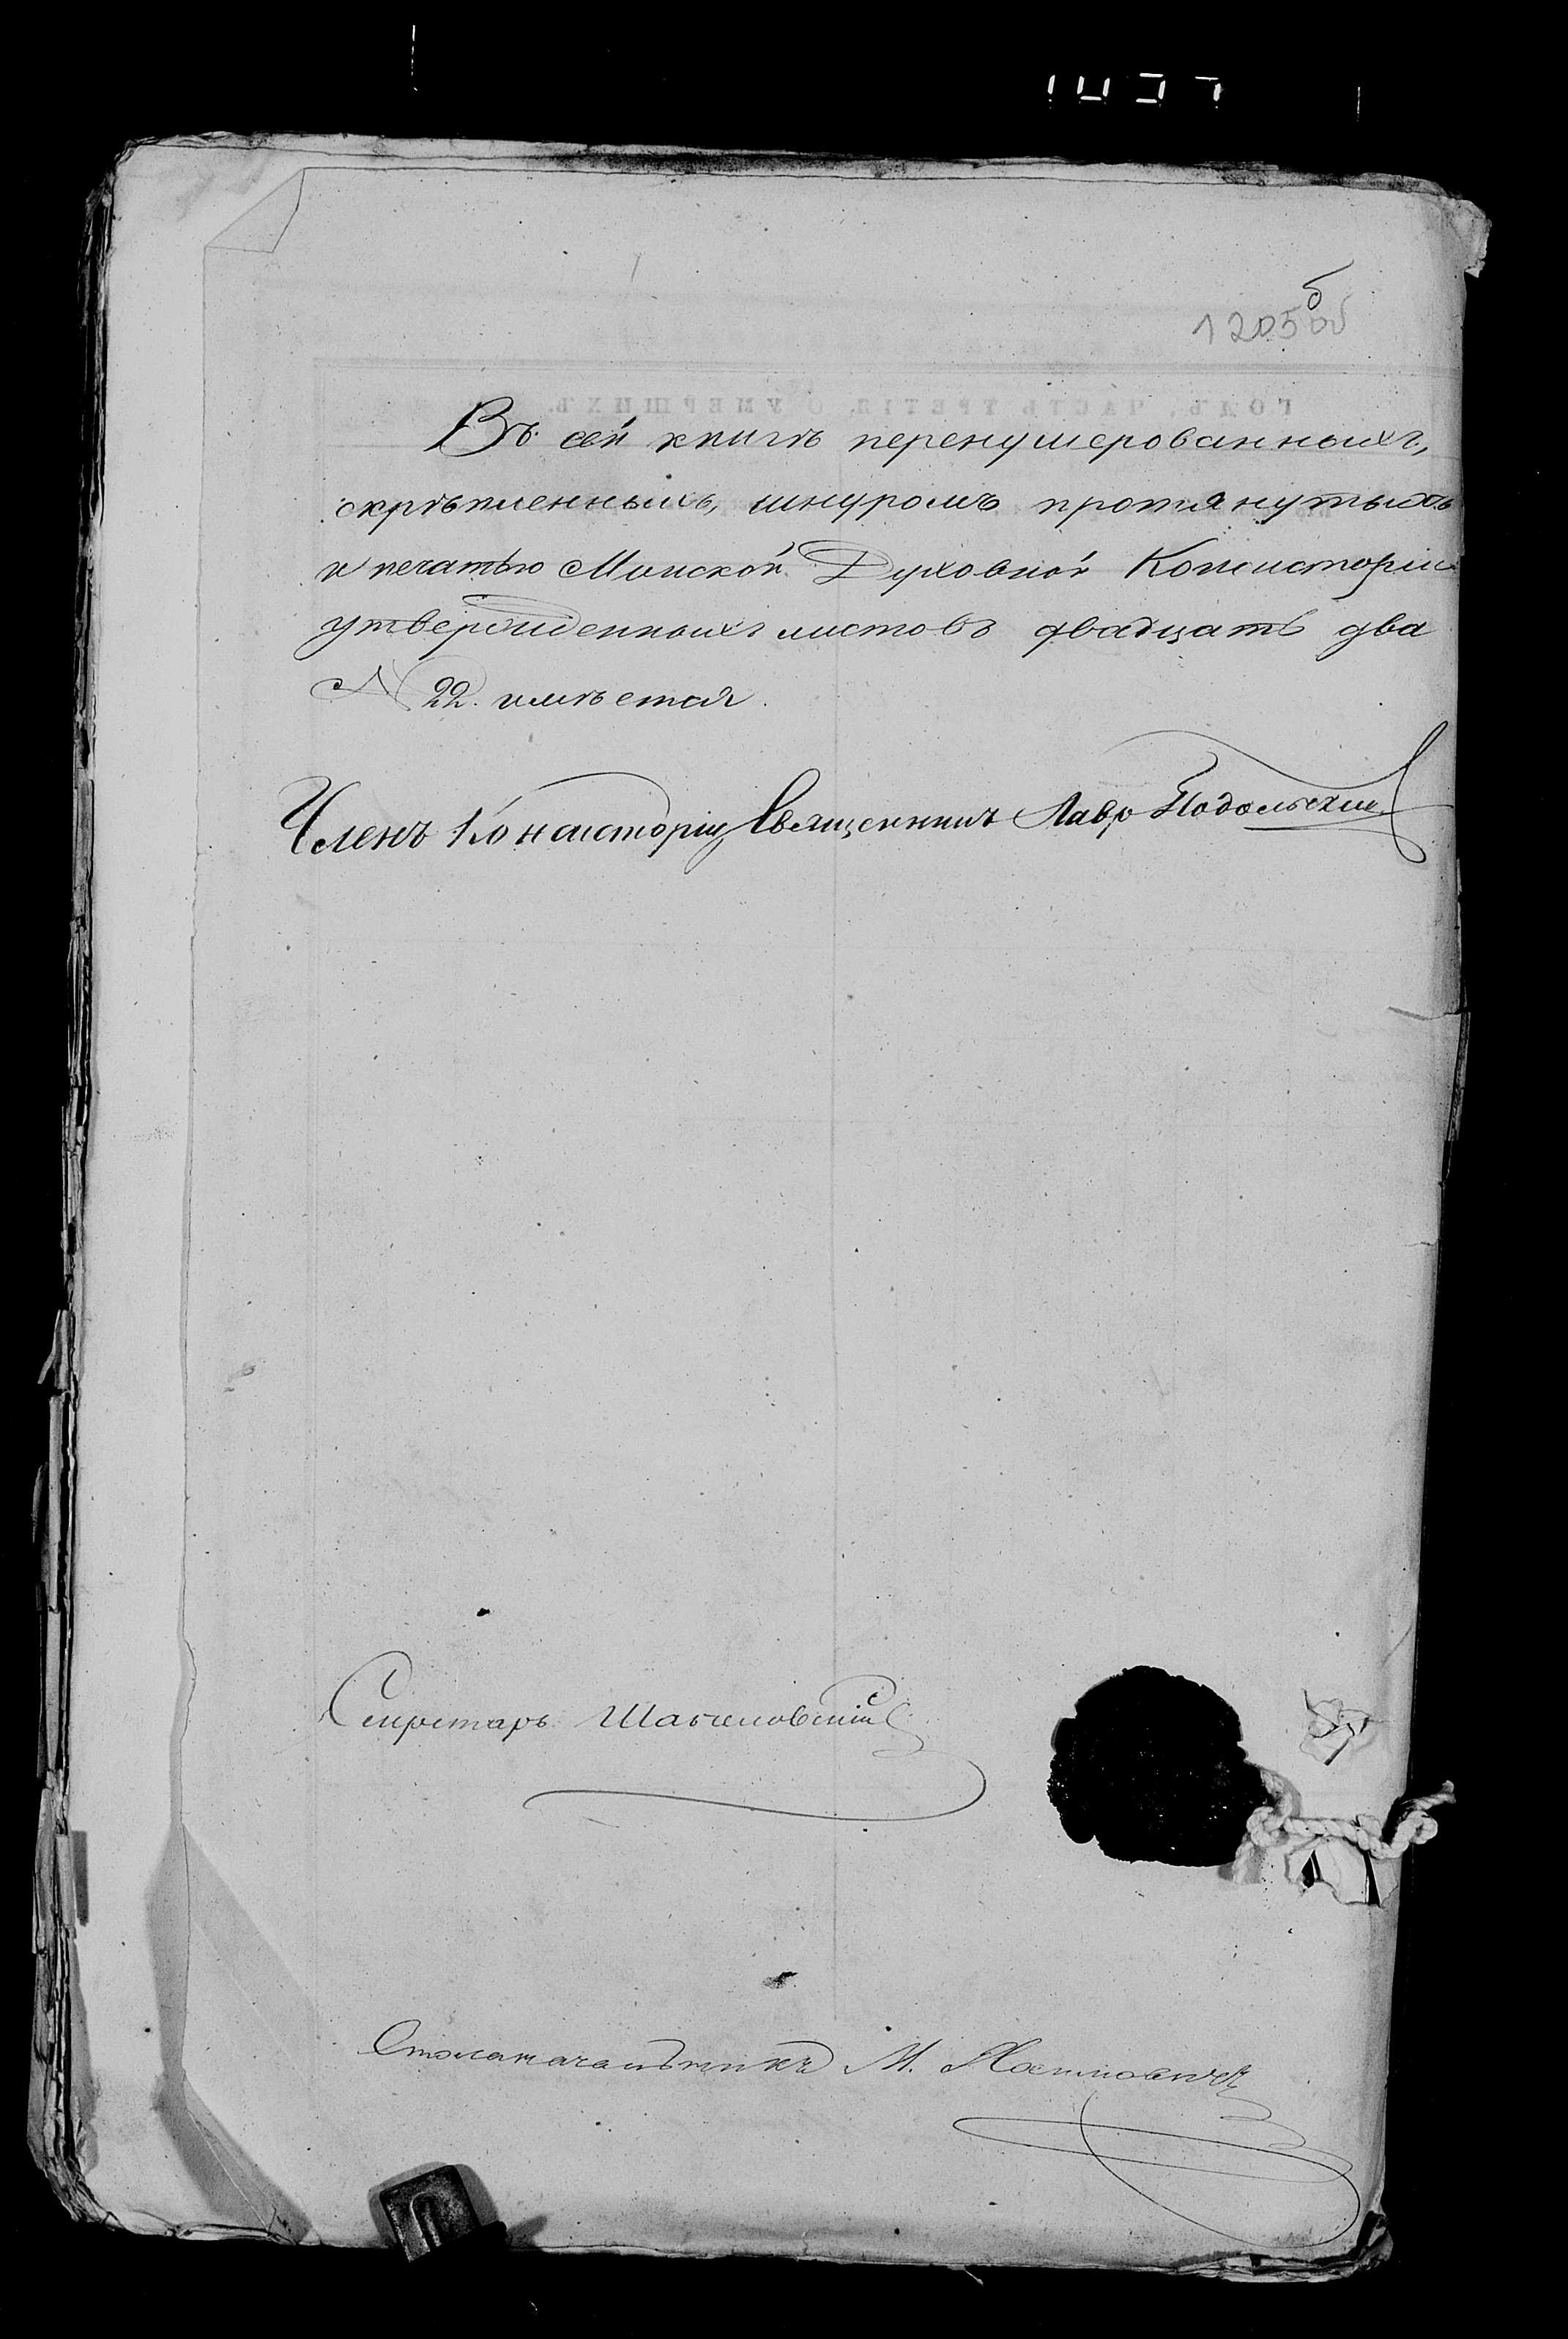 1205об
Въ сей книгѣ перенумерованныхъ,
скрѣпленныхъ, шнуромъ протянутыхъ
и печатью Минской Духовной Консисторіи
утвержденныхъ листовъ двадцать два
№ 22. имѣется.
Членъ Консисторіи Священникъ Лавръ Подольскій
Секретарь
Столоначальникъ М.
ГОДЪ ЧАСТЬ ТРЕТІЯ, О УМЕРШИХЪ.